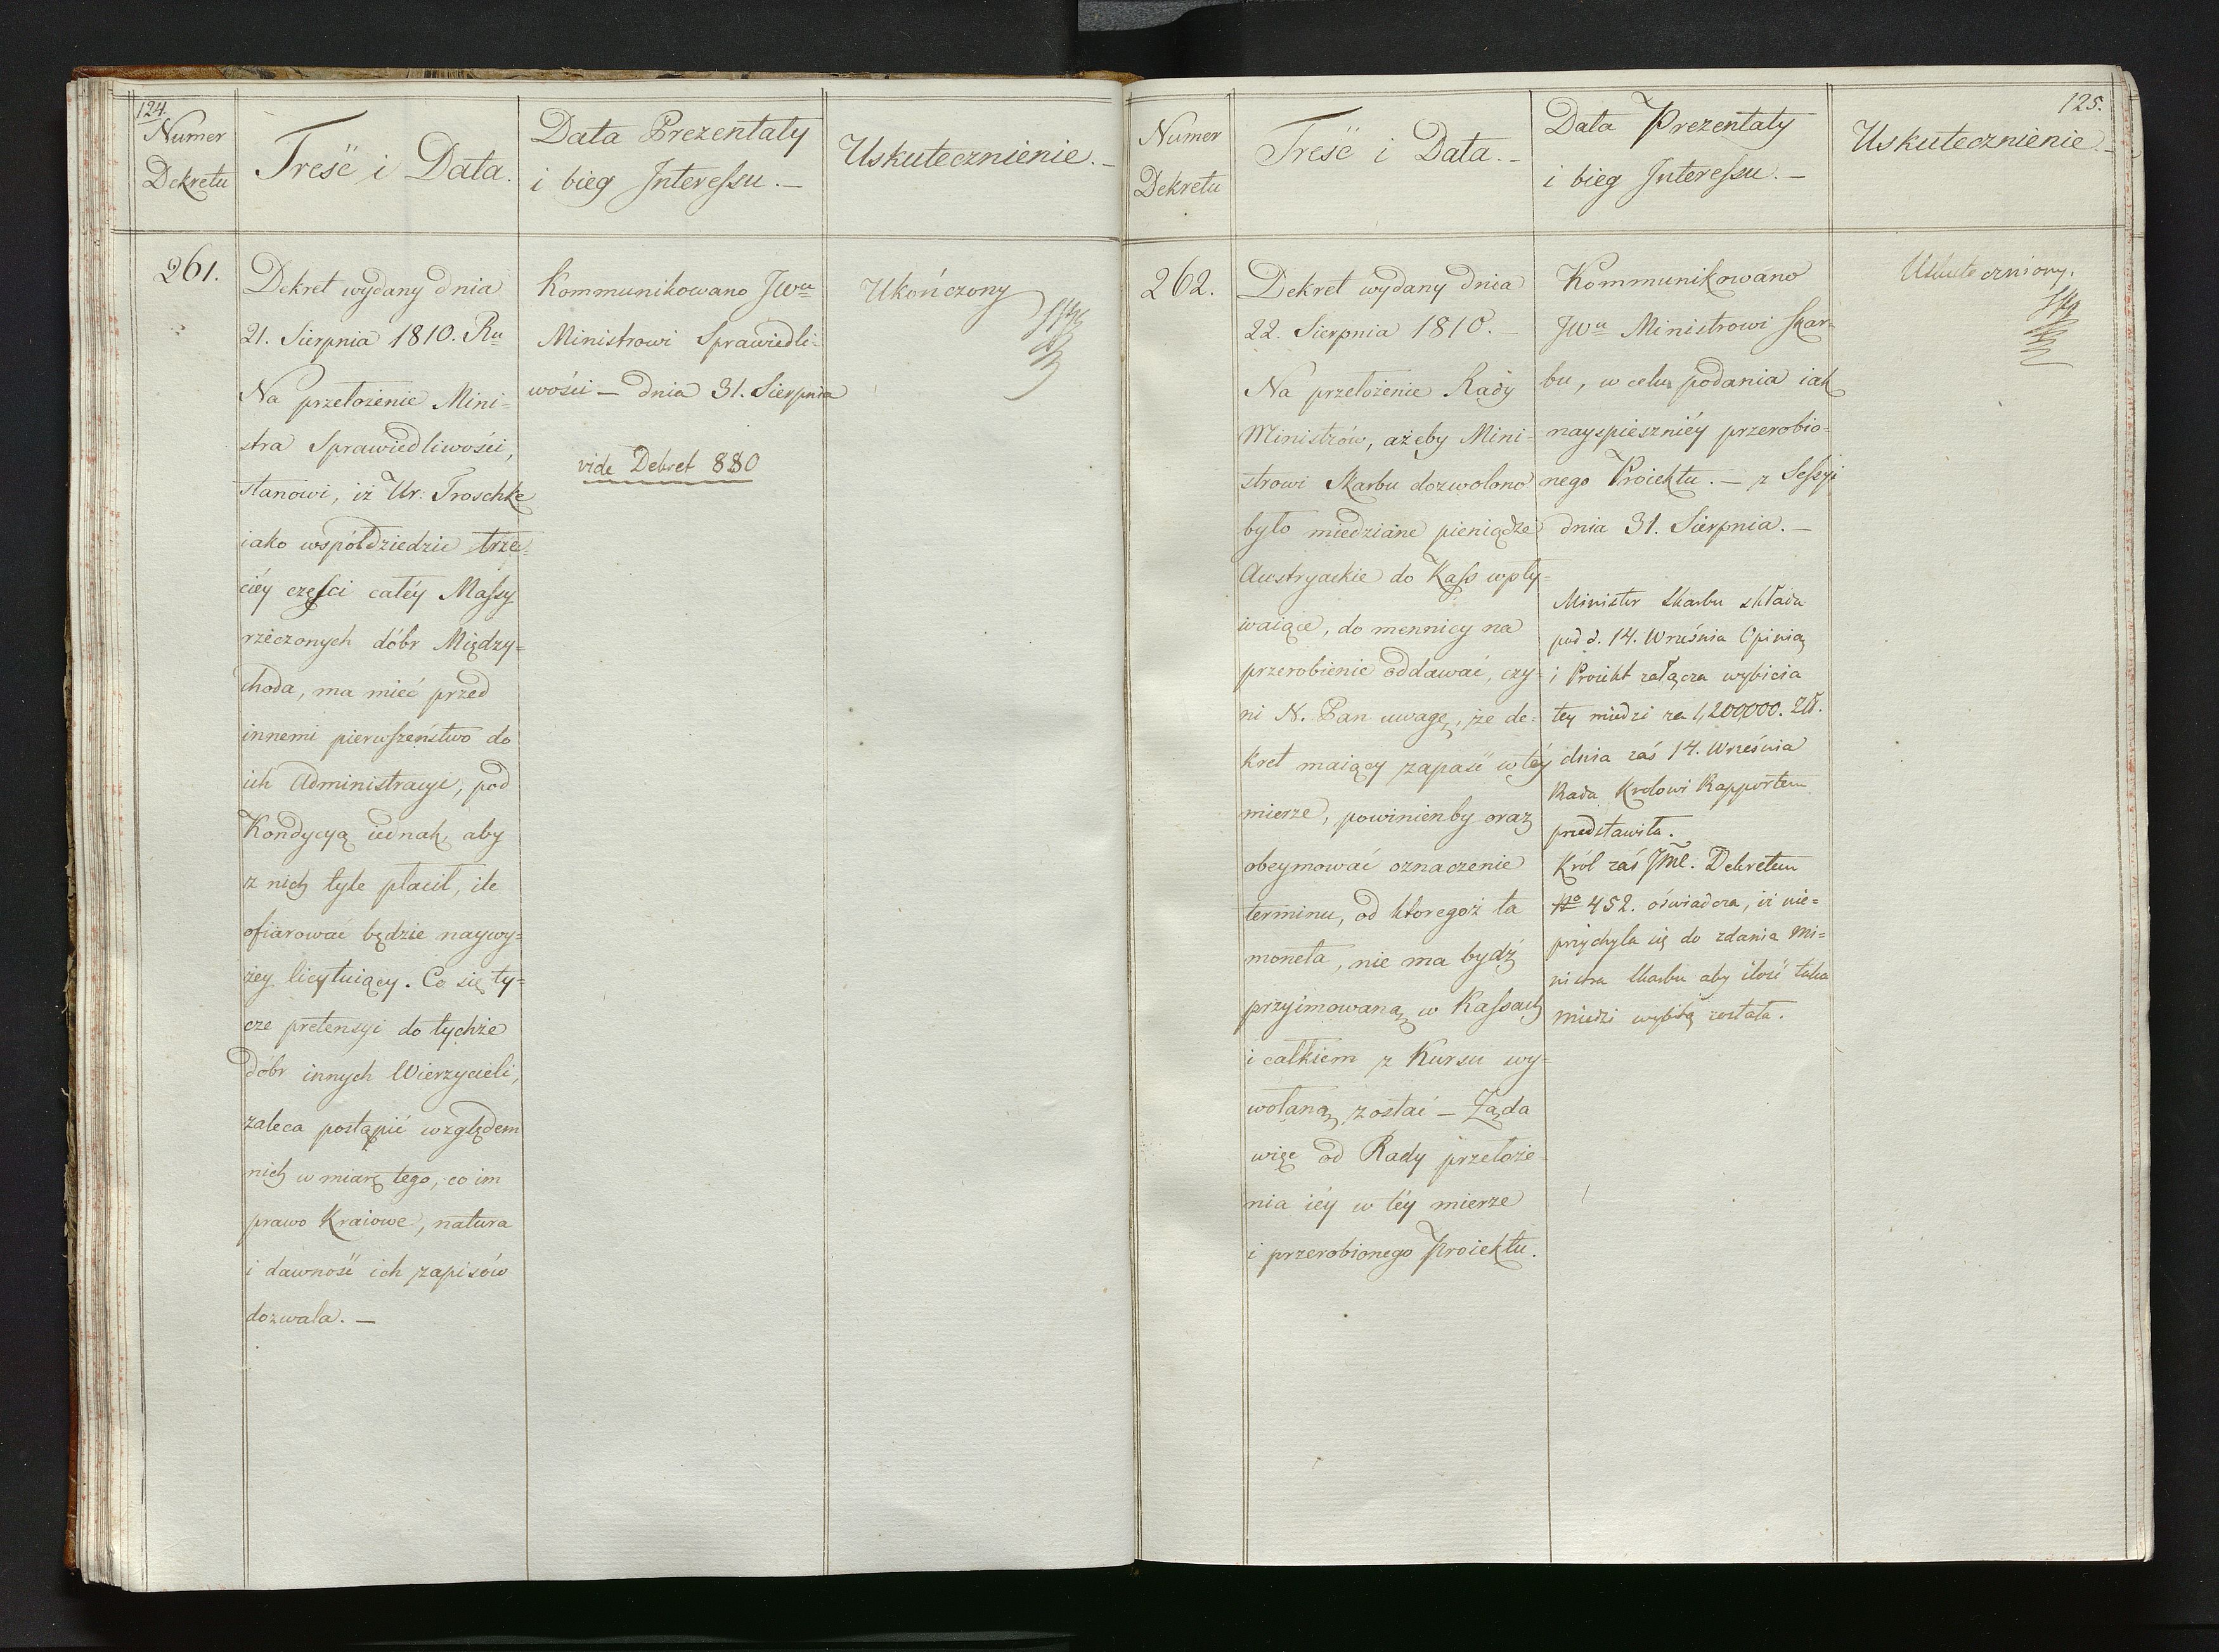 124.
Numer
Dekretu
Treść i Data.
Data Prezentaty
i bieg Interessu. —
Uskutecznienie. —
261.
Dekret wydany dnia
21. Sierpnia 1810. Ru
Na przełożenie Mini=
stra Sprawiedliwości,
stanowi, iż Ur: Troschke
iako współdziedzic trze=
ciéy części całéy Massy
rzeczonych dóbr Między=
choda, ma mieć przed
innemi pierwszeństwo do
ich Administracyi, pod
Kondycyą iednak, aby
z nich tyle płacił, ile
ofiarować będzie naywy=
żey licytuiący. Co się ty=
cze pretensyi do tychże
dóbr innych Wierzycieli,
zaleca postąpić względem
nich w miarę tego, co im
prawo Kraiowe, natura
i dawność ich zapisów
dozwala. —
Kommunikowano JWu
Ministrowi Sprawiedli-
wości — dnia 31. Sierpnia
vide Dekret 880
Ukończony
125.
Numer
Dekretu
Treść i Data. -
Data Prezentaty
i bieg Interessu. —
Uskutecznienie -
262.
Dekret wydany dnia
22. Sierpnia 1810. —
Na przełożenie Rady
Ministrów, ażeby Mini=
strowi Skarbu dozwolono
było miedziane pieniądze
Austryackie do Kass wpły=
waiące, do mennicy na
przerobienie oddawać, czy=
ni N. Pan uwagę, że de=
kret maiący zapaść w téy
mierze, powinienby oraz
obeymować oznaczenie
terminu, od ktoregoż ta
moneta, nie ma bydź
przyimowaną w Kassach
i całkiem z Kursu wy=
wołaną zostać — Żąda
więc od Rady przełoże=
nia iéy w téy mierze
i przerobionego Proiektu.
Kommunikowano
JWu Ministrowi Skar-
bu, w celu podania iak
nayspieszniéy przerobio=
nego Proiektu. — z Sessyi
dnia 31. Sierpnia. —
Minister Skarbu składa
pod d. 14. Września Opinią
i Proiekt załącza wybicia
tey miedzi za 1,200,000. Złł.
dnia zaś 14. Września
Rada Krolowi Rapportem
przedstawiła.
Król zaś Jmć. Dekretem
No 452. oświadcza, iż nie=
przychyla się do zdania Mi=
nistra Skarbu aby ilość taka
miedzi wybitą została.
Uskuteczniony.